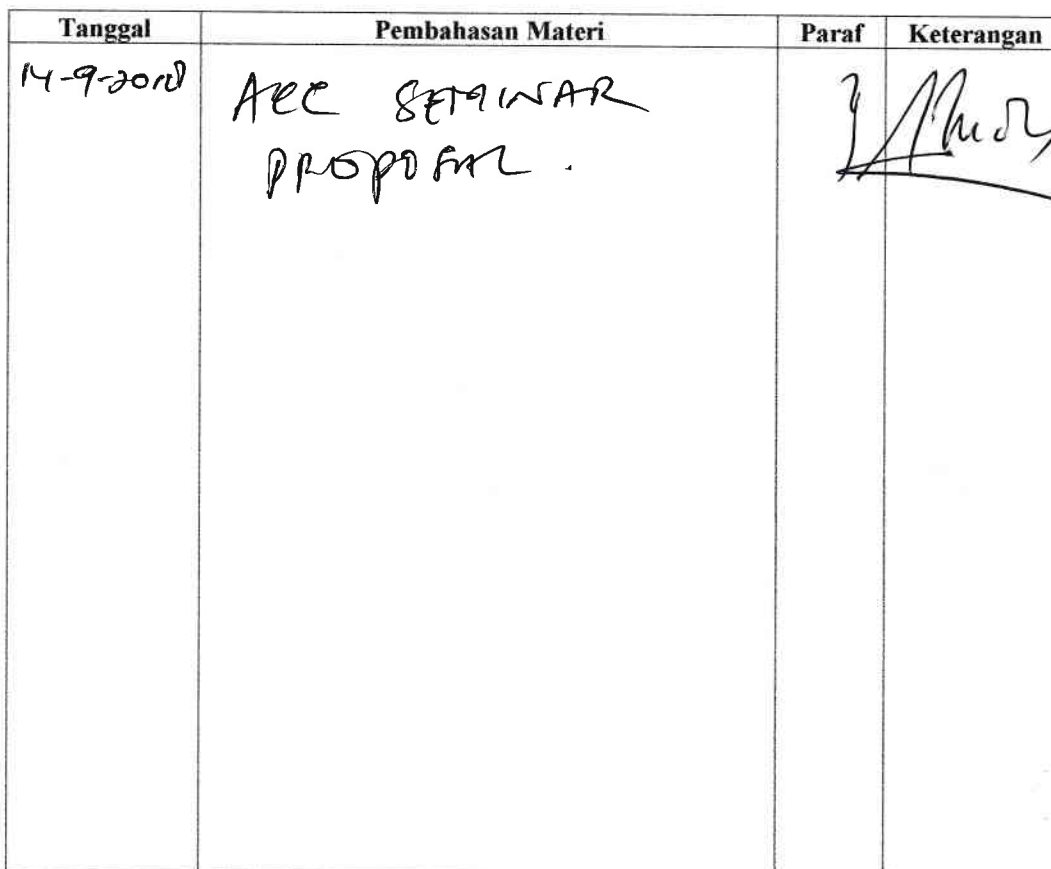 Tanggal Pembahasan Materi Paraf Keterangan
14-9-2018 ACC SEMINAR
PROPOSAL .